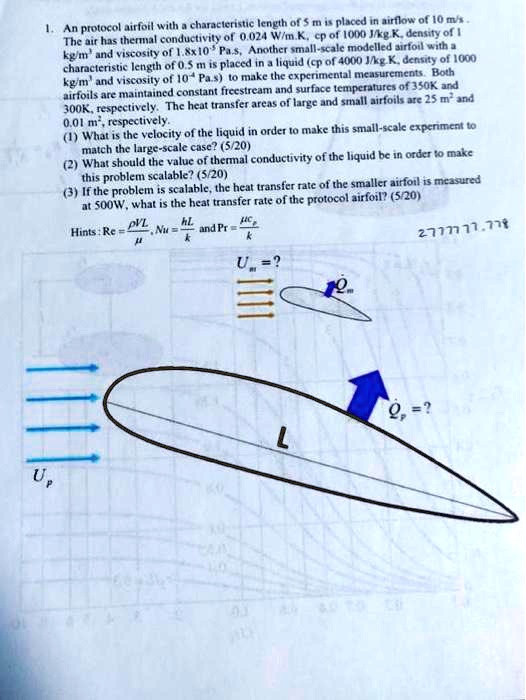 1. An protocol airfoil with a characteristic length of 5 m is placed in airflow of 10 m/s .
The air has thermal conductivity of 0.024 W/m.K, cp of 1000 J/kg.K, density of 1
kg/m³ and viscosity of 1.8x10⁻⁵ Pa.s, Another small-scale modelled airfoil with a
characteristic length of 0.5 m is placed in a liquid (cp of 4000 J/kg.K, density of 1000
kg/m³ and viscosity of 10⁻⁴ Pa.s) to make the experimental measurements. Both
airfoils are maintained constant freestream and surface temperatures of 350K and
300K, respectively. The heat transfer areas of large and small airfoils are 25 m² and
0.01 m², respectively.
(1) What is the velocity of the liquid in order to make this small-scale experiment to
match the large-scale case? (5/20)
(2) What should the value of thermal conductivity of the liquid be in order to make
this problem scalable? (5/20)
(3) If the problem is scalable, the heat transfer rate of the smaller airfoil is measured
at 500W, what is the heat transfer rate of the protocol airfoil? (5/20)
Hints : Re = ρVL/μ , Nu = hL/k and Pr = μCₚ/k
2777777.778
Uₘ = ?
Q̇ₘ
Q̇ₚ = ?
L
Uₚ